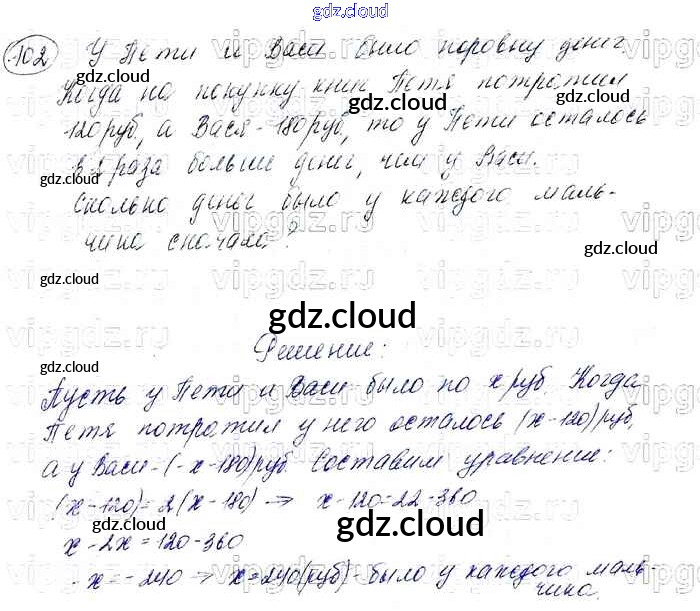 gdz.cloud
102 У Пети и Васи было поровну денег.
Когда на покупку книг Петя потратил
120 руб, а Вася - 180 руб, то у Пети осталось
в 2 раза больше денег, чем у Васи.
Сколько денег было у каждого маль-
чика сначала?
gdz.cloud
Решение:
Пусть у Пети и Васи было по x руб. Когда
Петя потратил у него осталось (x-120) руб,
а у Васи - (-x-180) руб. Составим уравнение:
(x-120) = 2(x-180) → x-120=2x-360
x-2x=120-360
-x=-240 → x=240(руб) - было у каждого маль-
чика.